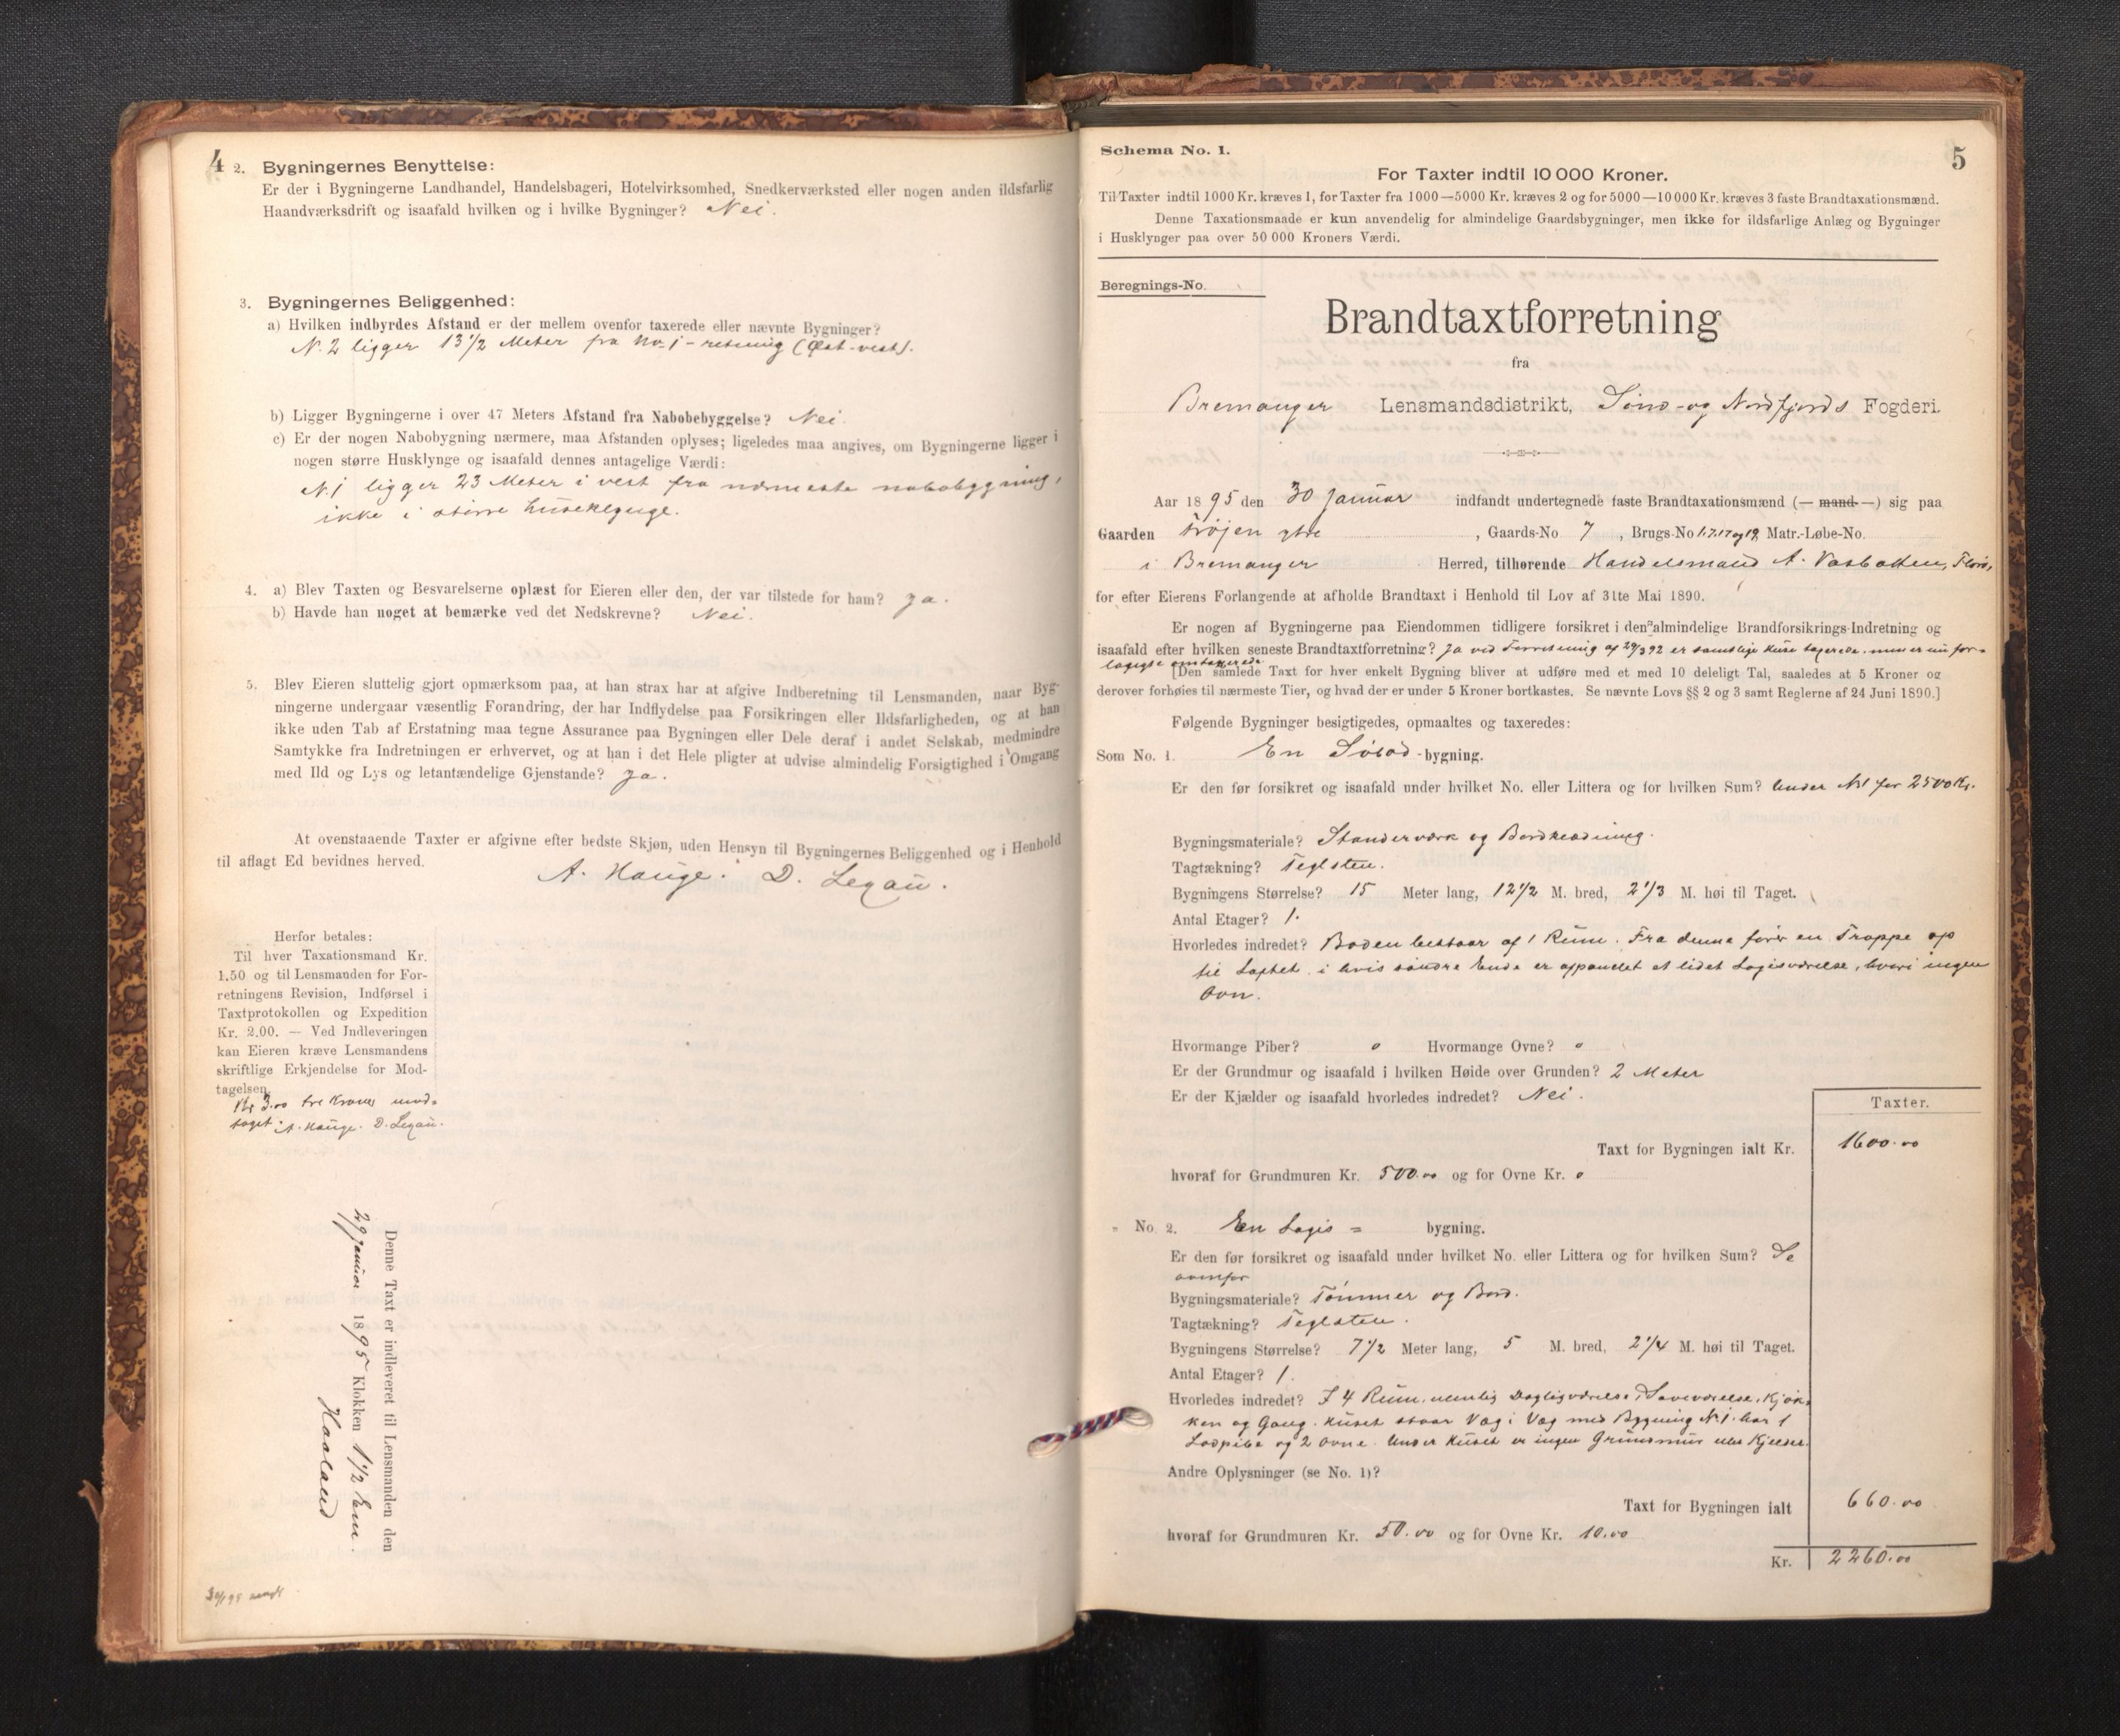 4
2. Bygningernes Benyttelse:
Er der i Bygningerne Landhandel, Handelsbageri, Hotelvirksomhed, Snedkerværksted eller nogen anden ildsfarlig
Haandværksdrift og isaafald hvilken og i hvilke Bygninger? Nei.
3. Bygningernes Beliggenhed:
a) Hvilken indbyrdes Afstand er der mellem ovenfor taxerede eller nævnte Bygninger?
N. 2 ligger 13 1/2 Meter fra No 1 - retning (Øst-vest).
b) Ligger Bygningerne i over 47 Meters Afstand fra Nabobebyggelse? Nei.
c) Er der nogen Nabobygning nærmere, maa Afstanden oplyses; ligeledes maa angives, om Bygningerne ligger i
nogen større Husklynge og isaafald dennes antagelige Værdi:
N. 1 ligger 23 Meter i vest fra nærmeste nabobygning,
ikke i større husklynge.
4. a) Blev Taxten og Besvarelserne oplæst for Eieren eller den, der var tilstede for ham? ja.
b) Havde han noget at bemærke ved det Nedskrevne? Nei.
5. Blev Eieren sluttelig gjort opmærksom paa, at han strax har at afgive Indberetning til Lensmanden, naar Byg-
ningerne undergaar væsentlig Forandring, der har Indflydelse paa Forsikringen eller Ildsfarligheden, og at han
ikke uden Tab af Erstatning maa tegne Assurance paa Bygningen eller Dele deraf i andet Selskab, medmindre
Samtykke fra Indretningen er erhvervet, og at han i det Hele pligter at udvise almindelig Forsigtighed i Omgang
med Ild og Lys og letantændelige Gjenstande? ja.
At ovenstaaende Taxter er afgivne efter bedste Skjøn, uden Hensyn til Bygningernes Beliggenhed og i Henhold
til aflagt Ed bevidnes herved.
A. Hauge. D. Legau.
Herfor betales:
Til hver Taxationsmand Kr.
1.50 og til Lensmanden for For-
retningens Revision, Indførsel i
Taxtprotokollen og Expedition
Kr. 2.00. — Ved Indleveringen
kan Eieren kræve Lensmandens
skriftlige Erkjendelse for Mod-
tagelsen.
Kr 3.00 tre Kroner mod-
taget. A. Hauge. D. Legau.
Denne Taxt er indleveret til Lensmanden den
29 januar 1895 Klokken 1 1/2 Em.
Haaland
5
Schema No. 1.
For Taxter indtil 10 000 Kroner.
Til Taxter indtil 1000 Kr. kræves 1, for Taxter fra 1000—5000 Kr. kræves 2 og for 5000—10 000 Kr. kræves 3 faste Brandtaxationsmænd.
Denne Taxationsmaade er kun anvendelig for almindelige Gaardsbygninger, men ikke for ildsfarlige Anlæg og Bygninger
i Husklynger paa over 50 000 Kroners Værdi.
Beregnings-No.
Brandtaxtforretning
fra
Bremanger Lensmandsdistrikt, Sønd- og Nordfjords Fogderi.
Aar 1895 den 30 januar indfandt undertegnede faste Brandtaxationsmænd (— mand —) sig paa
Gaarden Frøjen ytre, Gaards-No 7, Brugs-No 1.7.17 og 19, Matr.-Løbe-No.
i Bremanger Herred, tilhørende Handelsmand A. Vasbotten, Florø,
for efter Eierens Forlangende at afholde Brandtaxt i Henhold til Lov af 31te Mai 1890.
Er nogen af Bygningerne paa Eiendommen tidligere forsikret i den almindelige Brandforsikrings-Indretning og
isaafald efter hvilken seneste Brandtaxtforretning? Ja ved Forretning af 29/3 92 er samtlige Huse taxerede, men er nu for-
langte omtaxerede
[Den samlede Taxt for hver enkelt Bygning bliver at udføre med et med 10 deleligt Tal, saaledes at 5 Kroner og
derover forhøies til nærmeste Tier, og hvad der er under 5 Kroner bortkastes. Se nævnte Lovs §§ 2 og 3 samt Reglerne af 24 Juni 1890.]
Følgende Bygninger besigtigedes, opmaaltes og taxeredes:
Som No. 1. En Søbod-bygning.
Er den før forsikret og isaafald under hvilket No. eller Littera og for hvilken Sum? Under N. 1 for 2500 Kr.
Bygningsmateriale? Standerværk og Bordklædning.
Tagtækning? Teglsten.
Bygningens Størrelse? 15 Meter lang, 12 1/2 M. bred, 2 1/3 M. høi til Taget.
Antal Etager? 1.
Hvorledes indredet? Boden bestaar af 1 Rum. Fra denne fører en Trappe op
til Loftet, i hvis søndre Ende er oppanelet et lidet Logisværelse, hvori ingen
Ovn.
Hvormange Piber? 0 Hvormange Ovne? 0
Er der Grundmur og isaafald i hvilken Høide over Grunden? 2 Meter
Er der Kjælder og isaafald hvorledes indredet? Nei.
Taxter.
Taxt for Bygningen ialt Kr. 1600.00
hvoraf for Grundmuren Kr. 500.00 og for Ovne Kr. 0
" No. 2. En Logis= bygning.
Er den før forsikret og isaafald under hvilket No. eller Littera og for hvilken Sum? Se
ovenfor
Bygningsmateriale? Tømmer og Bord.
Tagtækning? Teglsten.
Bygningens Størrelse? 7 1/2 Meter lang, 5 M. bred, 2 1/4 M. høi til Taget.
Antal Etager? 1.
Hvorledes indredet? I 4 Rum, nemlig Dagligværelse, Soveværelse, Kjøk-
ken og Gang. Huset staar Væg i Væg med Bygning N. 1. har 1
Lodpibe og 2 ovne. Under Huset er ingen Grundmur eller Kjelder.
Andre Oplysninger (se No. 1)?
Taxt for Bygningen ialt 660.00
hvoraf for Grundmuren Kr. 50.00 og for Ovne Kr. 10.00
Kr. 2260.00